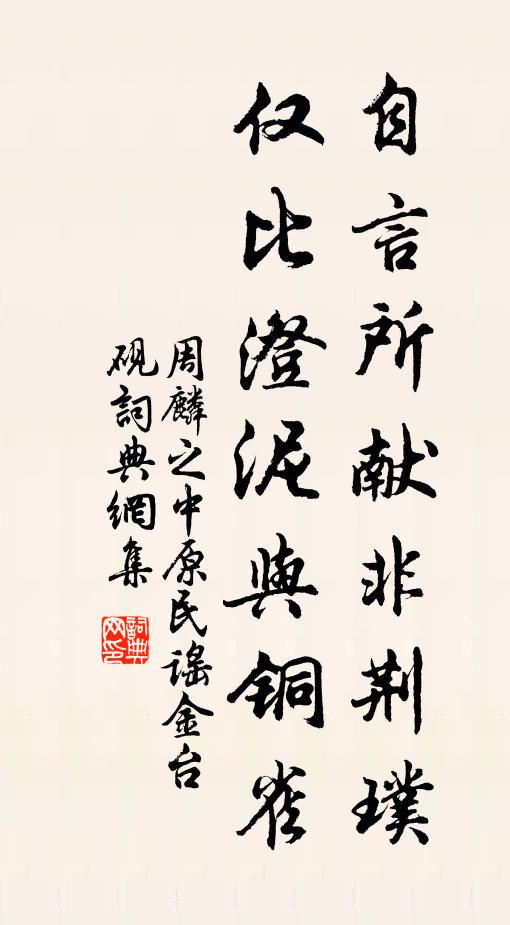 自言所献非荆璞
仅比澄泥與铜雀
周麟之中原民謡金台
砚詞典網集
詞典
网印